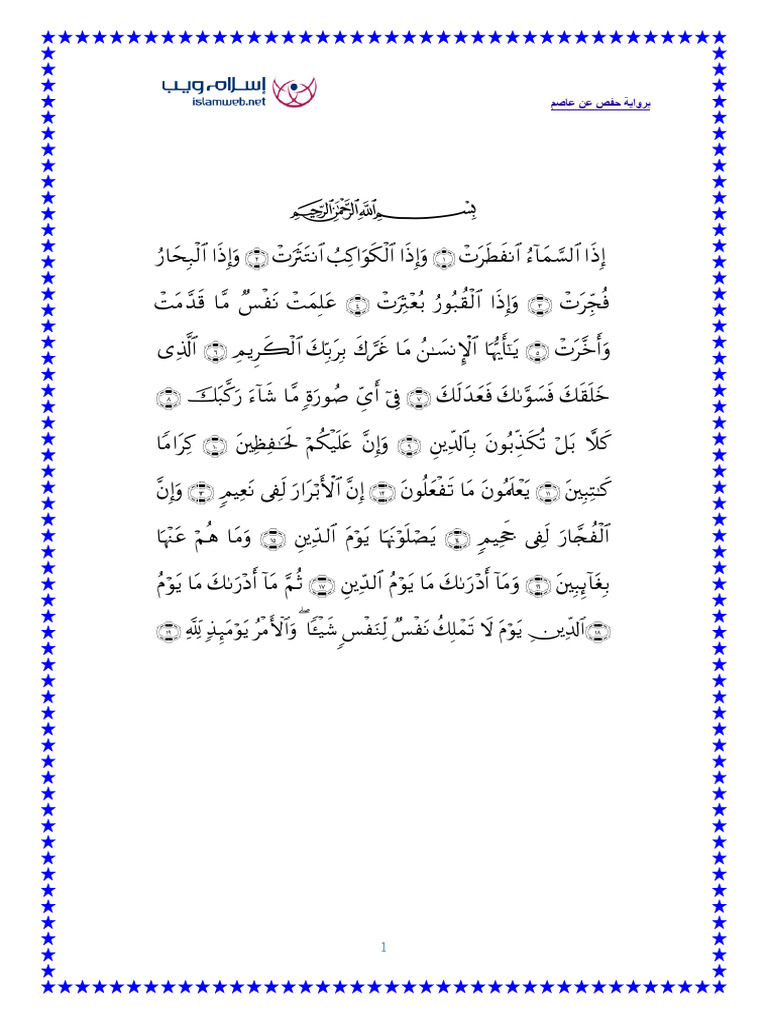 إسلام ويب
islamweb.net
برواية حفص عن عاصم
بِسْمِ ٱللَّهِ ٱلرَّحْمَٰنِ ٱلرَّحِيمِ
إِذَا ٱلسَّمَآءُ ٱنفَطَرَتْ ١ وَإِذَا ٱلْكَوَاكِبُ ٱنتَثَرَتْ ٢ وَإِذَا ٱلْبِحَارُ
فُجِّرَتْ ٣ وَإِذَا ٱلْقُبُورُ بُعْثِرَتْ ٤ عَلِمَتْ نَفْسٌ مَّا قَدَّمَتْ
وَأَخَّرَتْ ٥ يَٰٓأَيُّهَا ٱلْإِنسَٰنُ مَا غَرَّكَ بِرَبِّكَ ٱلْكَرِيمِ ٦ ٱلَّذِى
خَلَقَكَ فَسَوَّىٰكَ فَعَدَلَكَ ٧ فِىٓ أَىِّ صُورَةٍ مَّا شَآءَ رَكَّبَكَ ٨
كَلَّا بَلْ تُكَذِّبُونَ بِٱلدِّينِ ٩ وَإِنَّ عَلَيْكُمْ لَحَٰفِظِينَ ١٠ كِرَامًا
كَٰتِبِينَ ١١ يَعْلَمُونَ مَا تَفْعَلُونَ ١٢ إِنَّ ٱلْأَبْرَارَ لَفِى نَعِيمٍ ١٣ وَإِنَّ
ٱلْفُجَّارَ لَفِى جَحِيمٍ ١٤ يَصْلَوْنَهَا يَوْمَ ٱلدِّينِ ١٥ وَمَا هُمْ عَنْهَا
بِغَآئِبِينَ ١٦ وَمَآ أَدْرَىٰكَ مَا يَوْمُ ٱلدِّينِ ١٧ ثُمَّ مَآ أَدْرَىٰكَ مَا يَوْمُ
ٱلدِّينِ ١٨ يَوْمَ لَا تَمْلِكُ نَفْسٌ لِّنَفْسٍ شَيْـًٔا ۖ وَٱلْأَمْرُ يَوْمَئِذٍ لِّلَّهِ ١٩
1